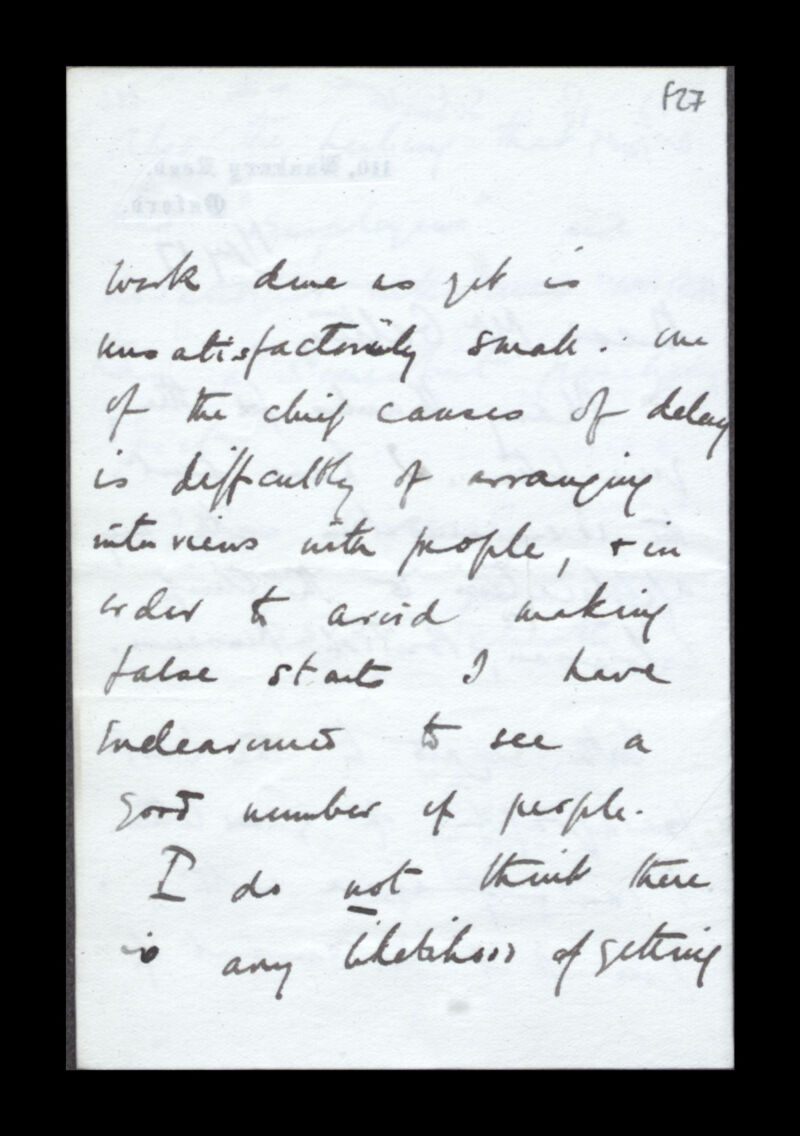 F27
work done as yet is
unsatisfactorily small. One
of the chief causes of delay
is difficulty of arranging
interviews with people, & in
order to avoid making
false starts I have
endeavoured to see a
good number of people.
I do not think there
is any likelihood of getting